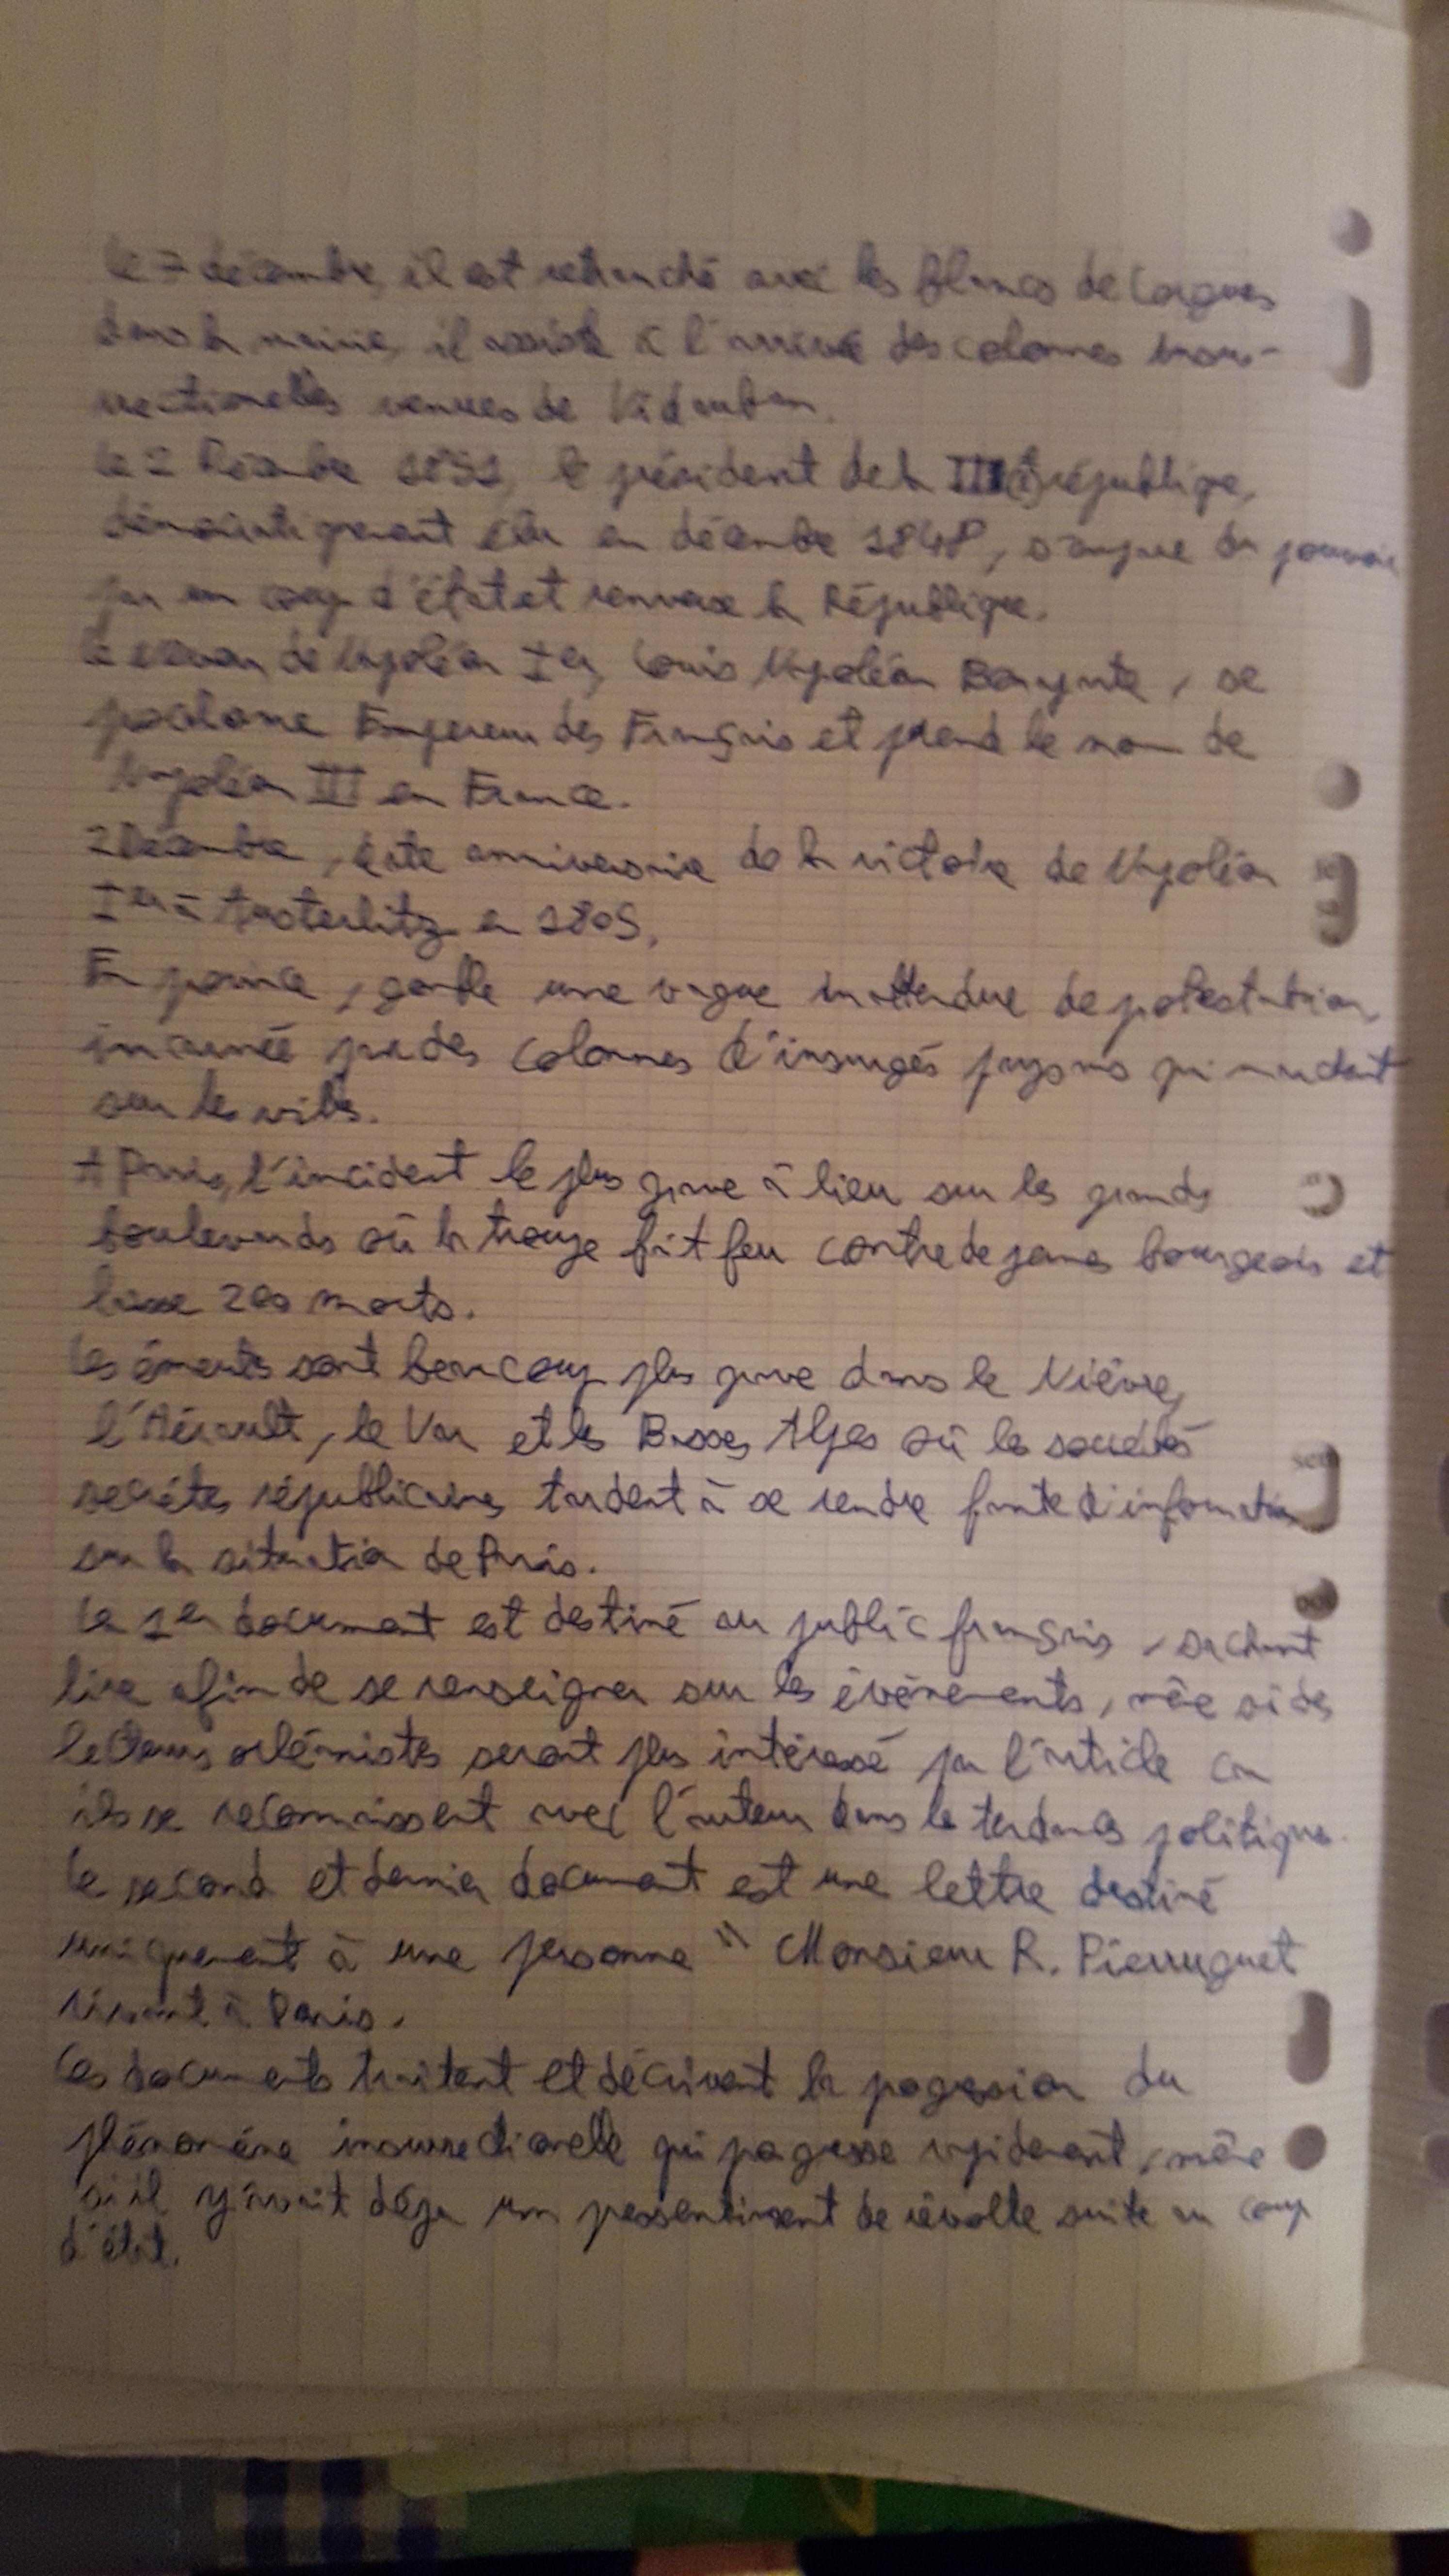 Le 7 décembre, il est retranché avec les blancs de Lorgues
dans la mairie, il assiste à l'arrivé des colonnes insur-
rectionelles venues de Vidauban.
Le 2 Décembre 1851, le président de la république,
démocratiquement élu en décembre 1848, s'empare du pouvoir
par un coup d'état et renverse la République.
Le neveu de Napoléon Ier, Louis Napoléon Bonaparte, se
proclame Empereur des Français et prend le nom de
Napoléon III en France.
2 Décembre, date anniversaire de la victoire de Napoléon
Ier à Austerlitz en 1805,
En province, gonfle une vague inattendue de protestation
incarnée par des colonnes d'insurgés paysans qui marchent
sur les villes.
A Paris, l'incident le plus grave à lieu sur les grands
boulevards où la troupe fait feu contre de jeunes bourgeois et
laisse 200 morts.
Les émeutes sont beaucoup plus grave dans le Nièvre,
l'Hérault, le Var et les Basses Alpes où les sociétés
secrètes républicaines tardent à se rendre faute d'information
sur la situation de Paris.
Le 1er document est destiné au public français, sachant
lire afin de se renseigner sur les évènements, même si des
lecteurs orléanistes seront plus intéressé par l'article car
ils se reconnaissent avec l'auteur dans le tendances politique.
Le second et dernier document est une lettre destiné
uniquement à une personne " Monsieur R. Pierrugnet
vivant à Paris.
Ces documents traitent et décrivent la progression du
phénomène insurrectionelle qui progresse rapidement, même
si il y avait déja un pressentiment de révolte suite au coup
d'état.